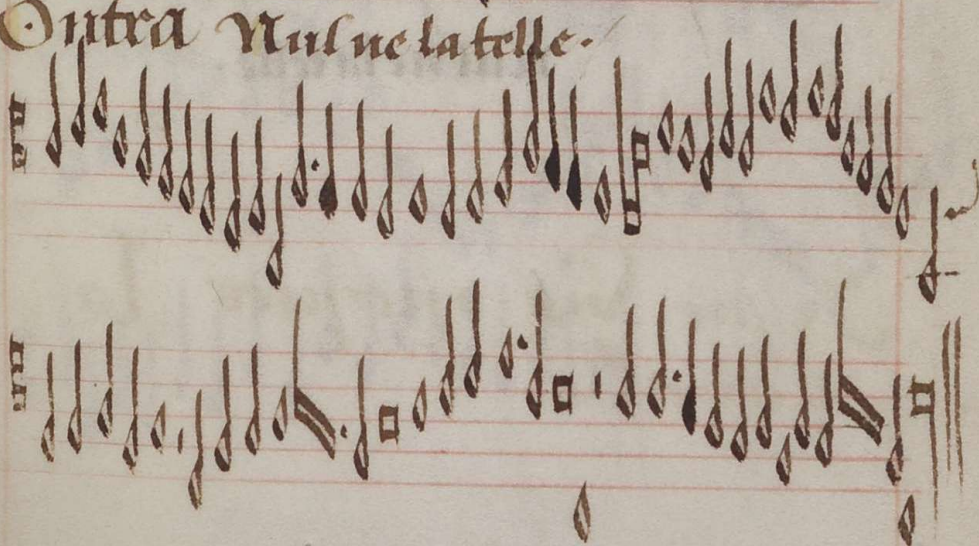 Contra Nul ne la telle.